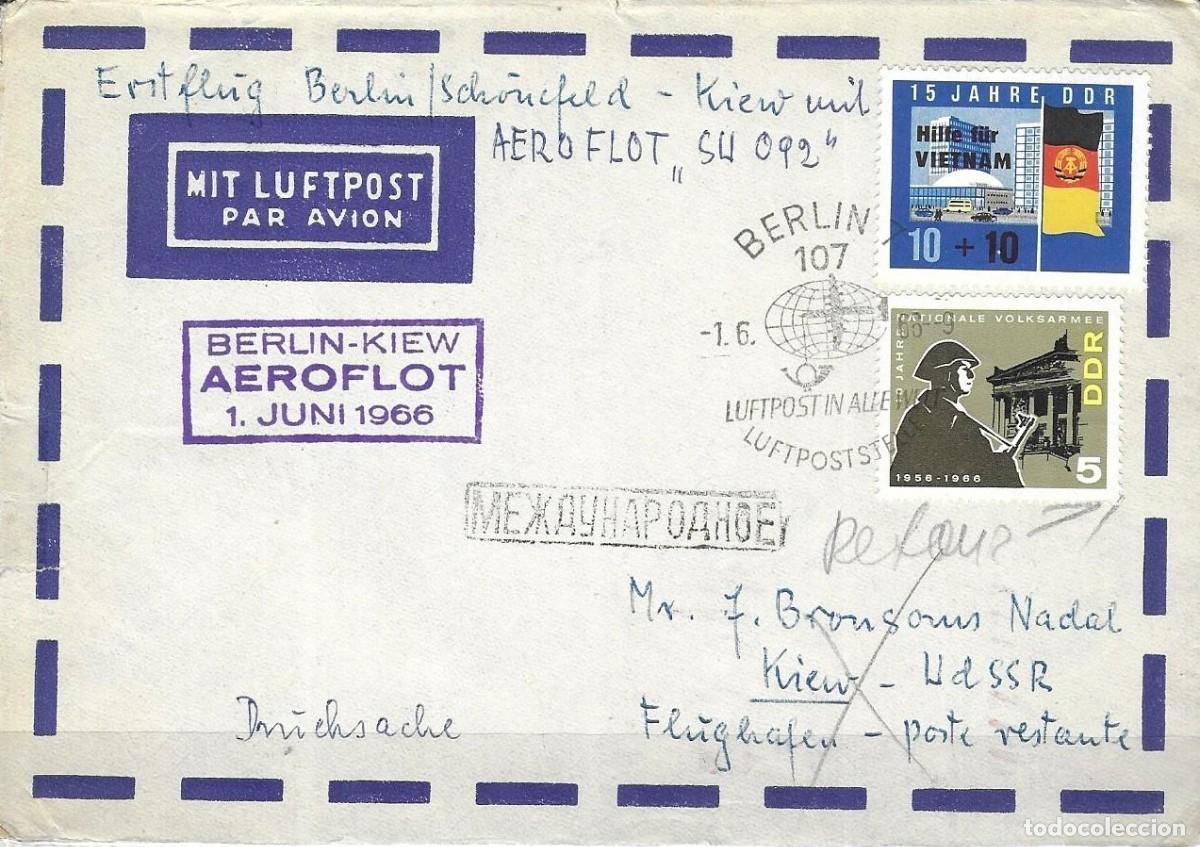 Erstflug Berlin/Schönefeld - Kiew mit
AEROFLOT "SU 092"
MIT LUFTPOST
PAR AVION
15 JAHRE DDR
Hilfe für
VIETNAM
10 + 10
BERLIN
107
-1.6. 66--9
LUFTPOST IN ALLE WELT
LUFTPOSTSTELLE
JAHRE NATIONALE VOLKSARMEE
DDR
5
1956-1966
BERLIN-KIEW
AEROFLOT
1. JUNI 1966
МЕЖДУНАРОДНОЕ
Mr. J. Bronsoms Nadal
Kiew - UdSSR
Flughafen - poste restante
Drucksache
todocoleccion